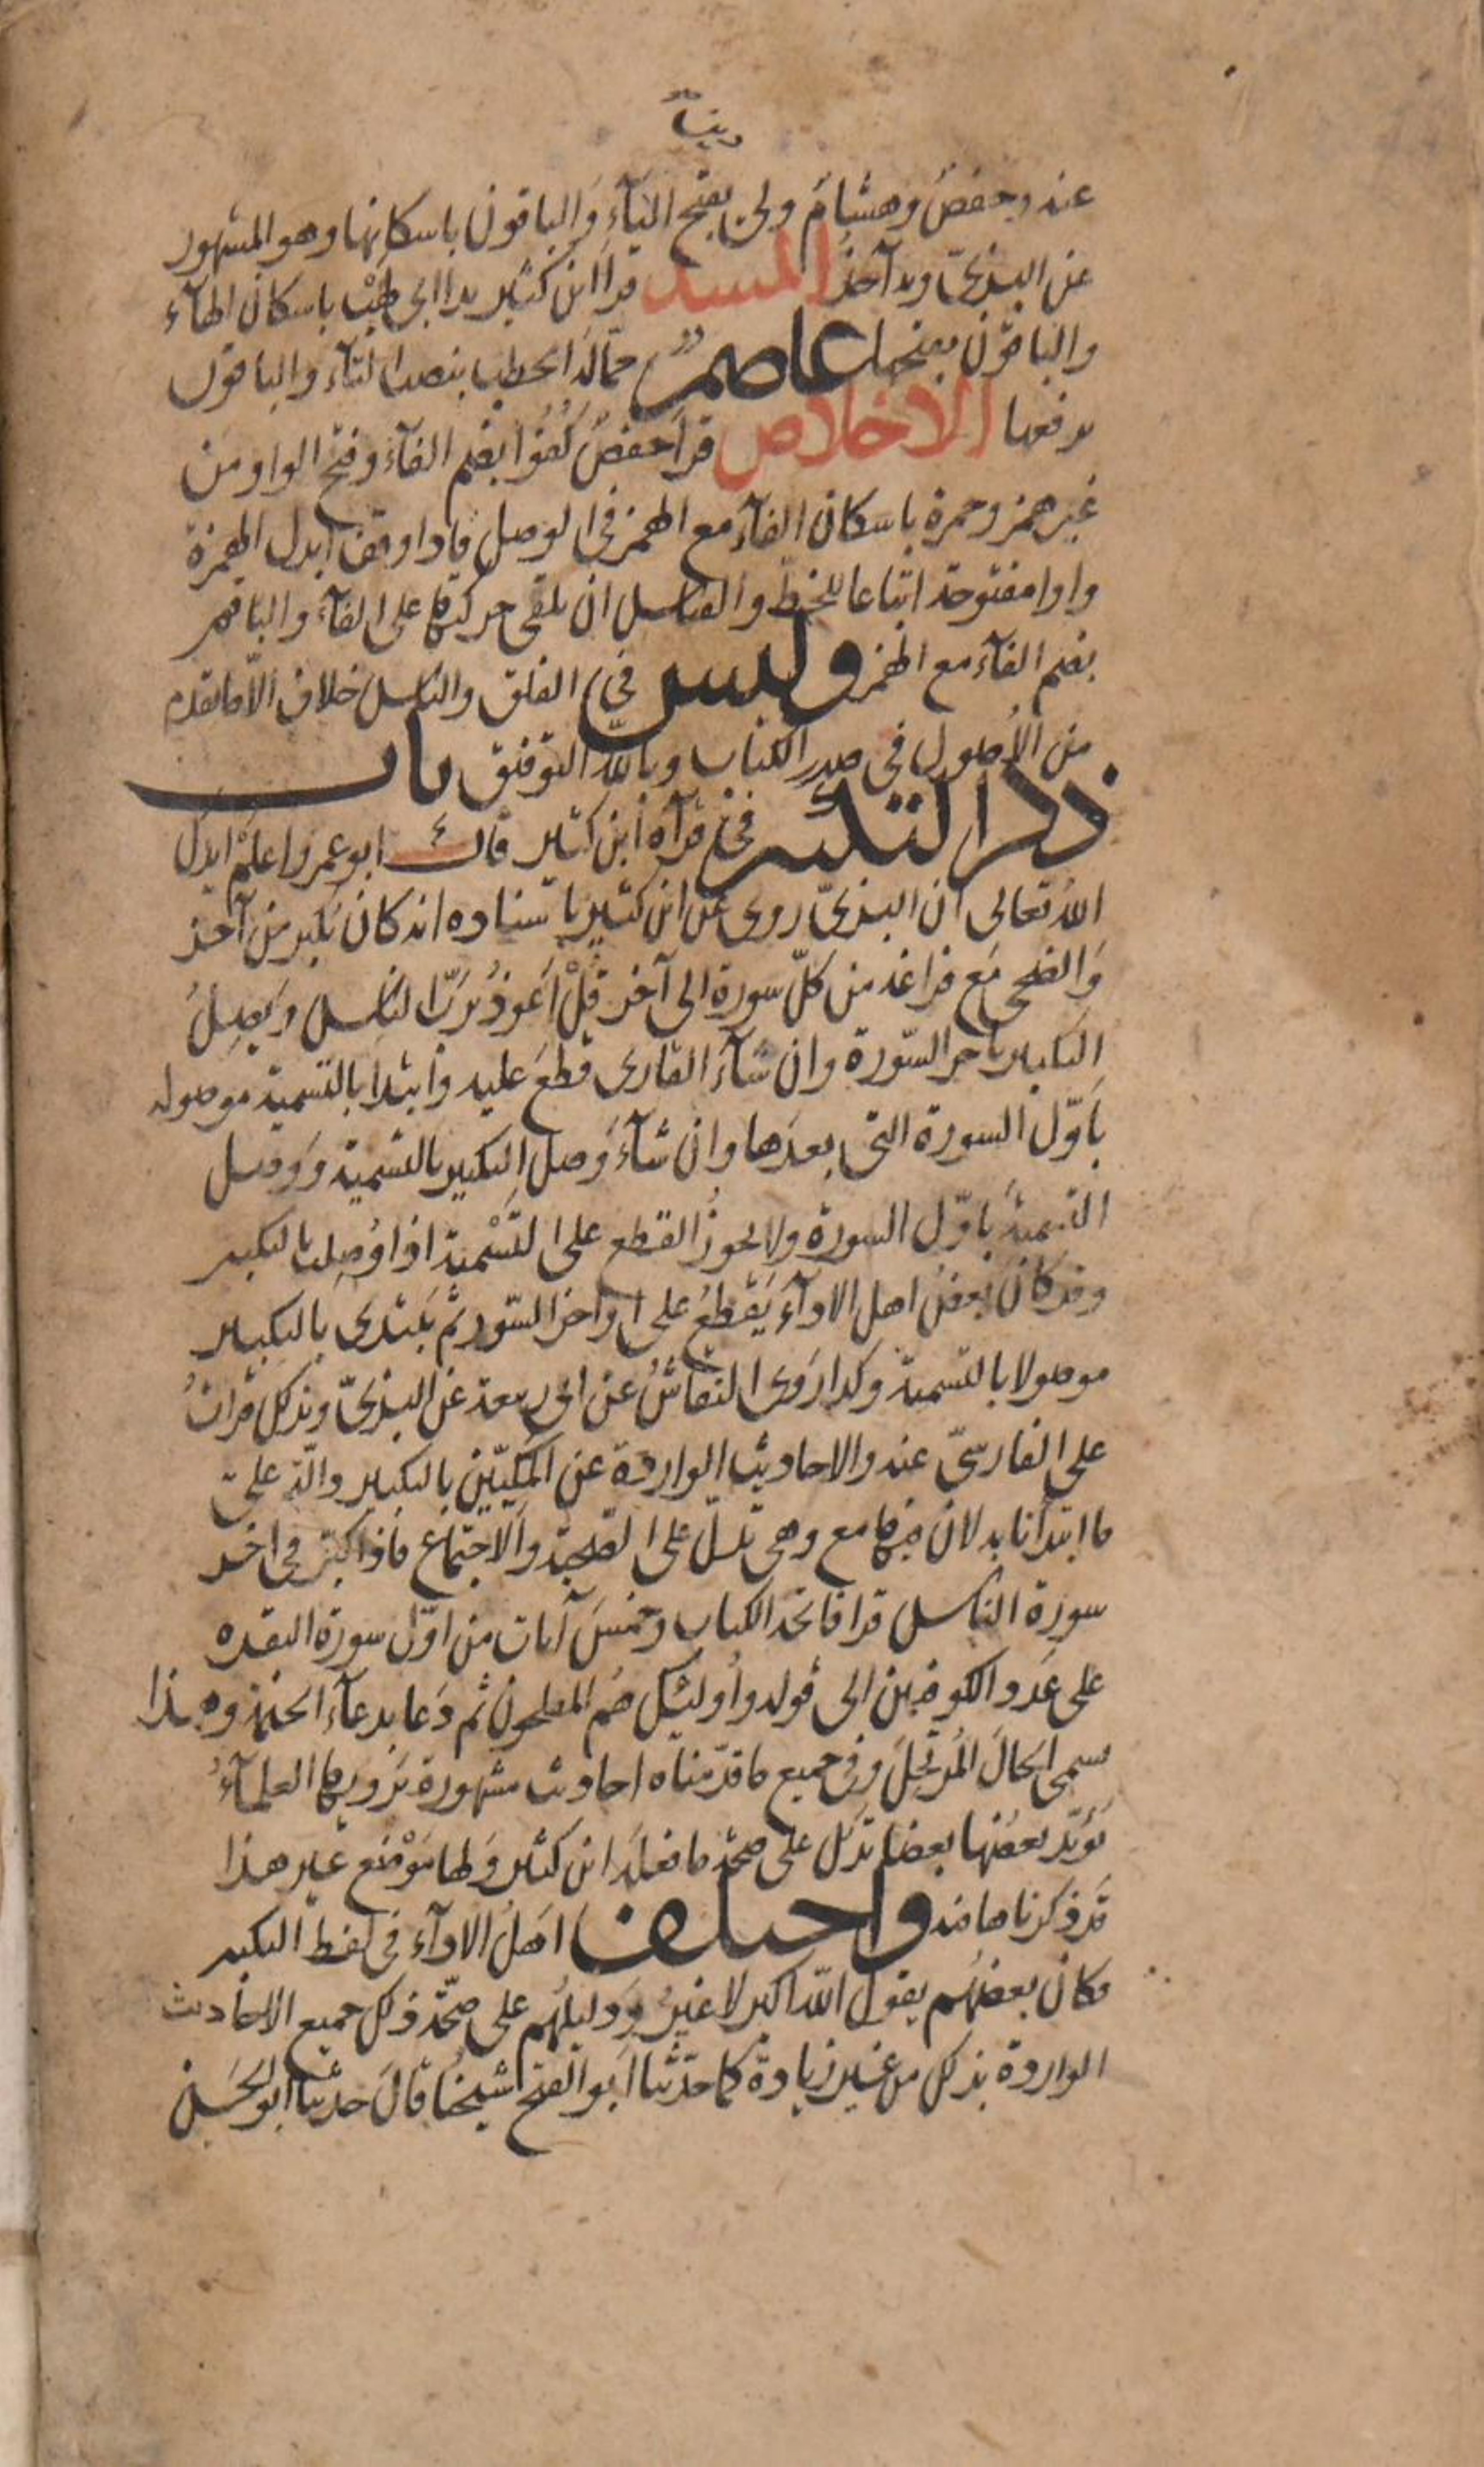 عنه وحفصٌ وهشامٌ ولى بفتح اليآءِ وَالباقون باسكانها وهو المشهور
عن البزىّ وبه آخذُ المسد قرا ابن كثير يدا ابى لهْب باسكان الهآء
والباقون بفتحها عاصم حمّالةَ الحطب بنصب التآء والباقون
برفعها الاخلاص قرأ حفصٌ كُفُوًا بضم الفآء وفتح الواو من
غير همز وحمزة باسكان الفآء مع الهمز فى الوصل فاذا وقف ابدل الهمزة
واوا مفتوحة اتباعا للخطّ والقياس ان يلقى حركتها على الفآء والباقون
بضم الفآء مع الهمز وليس فى الفلق والناس خلاف الّا ما تقدم
من الأصول فى صدر الكتاب وبالله التوفيق باب
ذكر التكبير فى قرآة ابن كثير قال ابو عمرو اعلمْ ايدك
اللّه تعالى ان البزىّ روى عن ابن كثير باسناده انه كان يكبر من آخر
وَالضحى مَع فراغه من كلّ سورة الى آخر قلْ اَعوذُ بربّ الناس ويصِلُ
التكبير باخر السّورة وان شآءَ القارى قطعَ عليه وابتدا بالتسمية موصولة
باَوّل السورة التى بعدَها وان شآءَ وَصل التكبير بالتسمية وَوصل
التسميةَ باوّل السورة ولا يجوزُ القطع على التّسْمية اذا وُصِلت بالتكبير
وقد كان بَعضُ اهل الادآءِ يَقْطعُ على اواخر السّور ثم يَبتدى بالتكبير
موصولا بالتسمية وكذا رَوى النقاشُ عن ابى ربيعة عن البزىّ وبذلك قراتُ
على الفارسىّ عنه والاحاديث الواردة عن المكيّين بالتكبير دالّة على
ما ابتدانا به لان فيها مع وهى تدلّ على الصحبة والاجتماع فاذا كبّر فى اخر
سورة الناس قرا فاتحة الكتاب وخمسَ آيات من اوّل سورة البقرة
على عَدد الكوفيين الى قوله واُولئك هُم المفلحون ثم دَعا بدعآء الختمة وهذا
سمى الحَالّ المُرتحِلَ وفى جميع ما قدّمناه احاديث مشهورة يَرويها العلمآءُ
يُؤيّد بعضُها بعضا تدل على صحّة ما فعلَه ابن كثير وَلها مَوْضع غير هذا
قَد ذكرناها فيه واختلف اهلُ الادآء فى لفظ التكبير
فكان بعضهُم يقول اللّه اكبر لا غيرُ وَدليلُهم على صحّة ذلك جميع الاحاديث
الواردة بذلك من غير زيادة كما حدّثنا اَبو الفتح شيخُنا قالَ حدثنا ابو الحَسَن